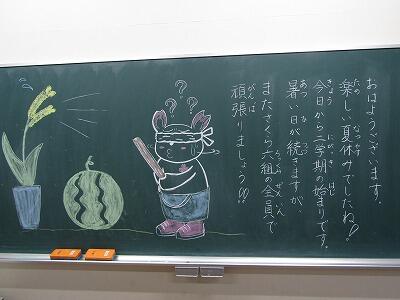 おはようございます。
楽しい夏休みでしたね！
今日から二学期の始まりです。
暑い日が続きますが、
またさくら六組の全員で
頑張りましょう!!
???